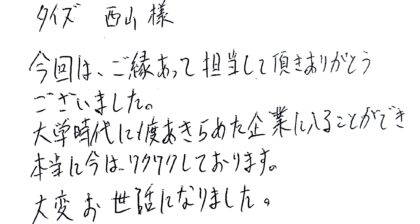 タイズ 西山様
今回は、ご縁あって担当して頂きありがとう
ございました。
大学時代に1度あきらめた企業に入ることができ
本当に今は、ワクワクしております。
大変お世話になりました。